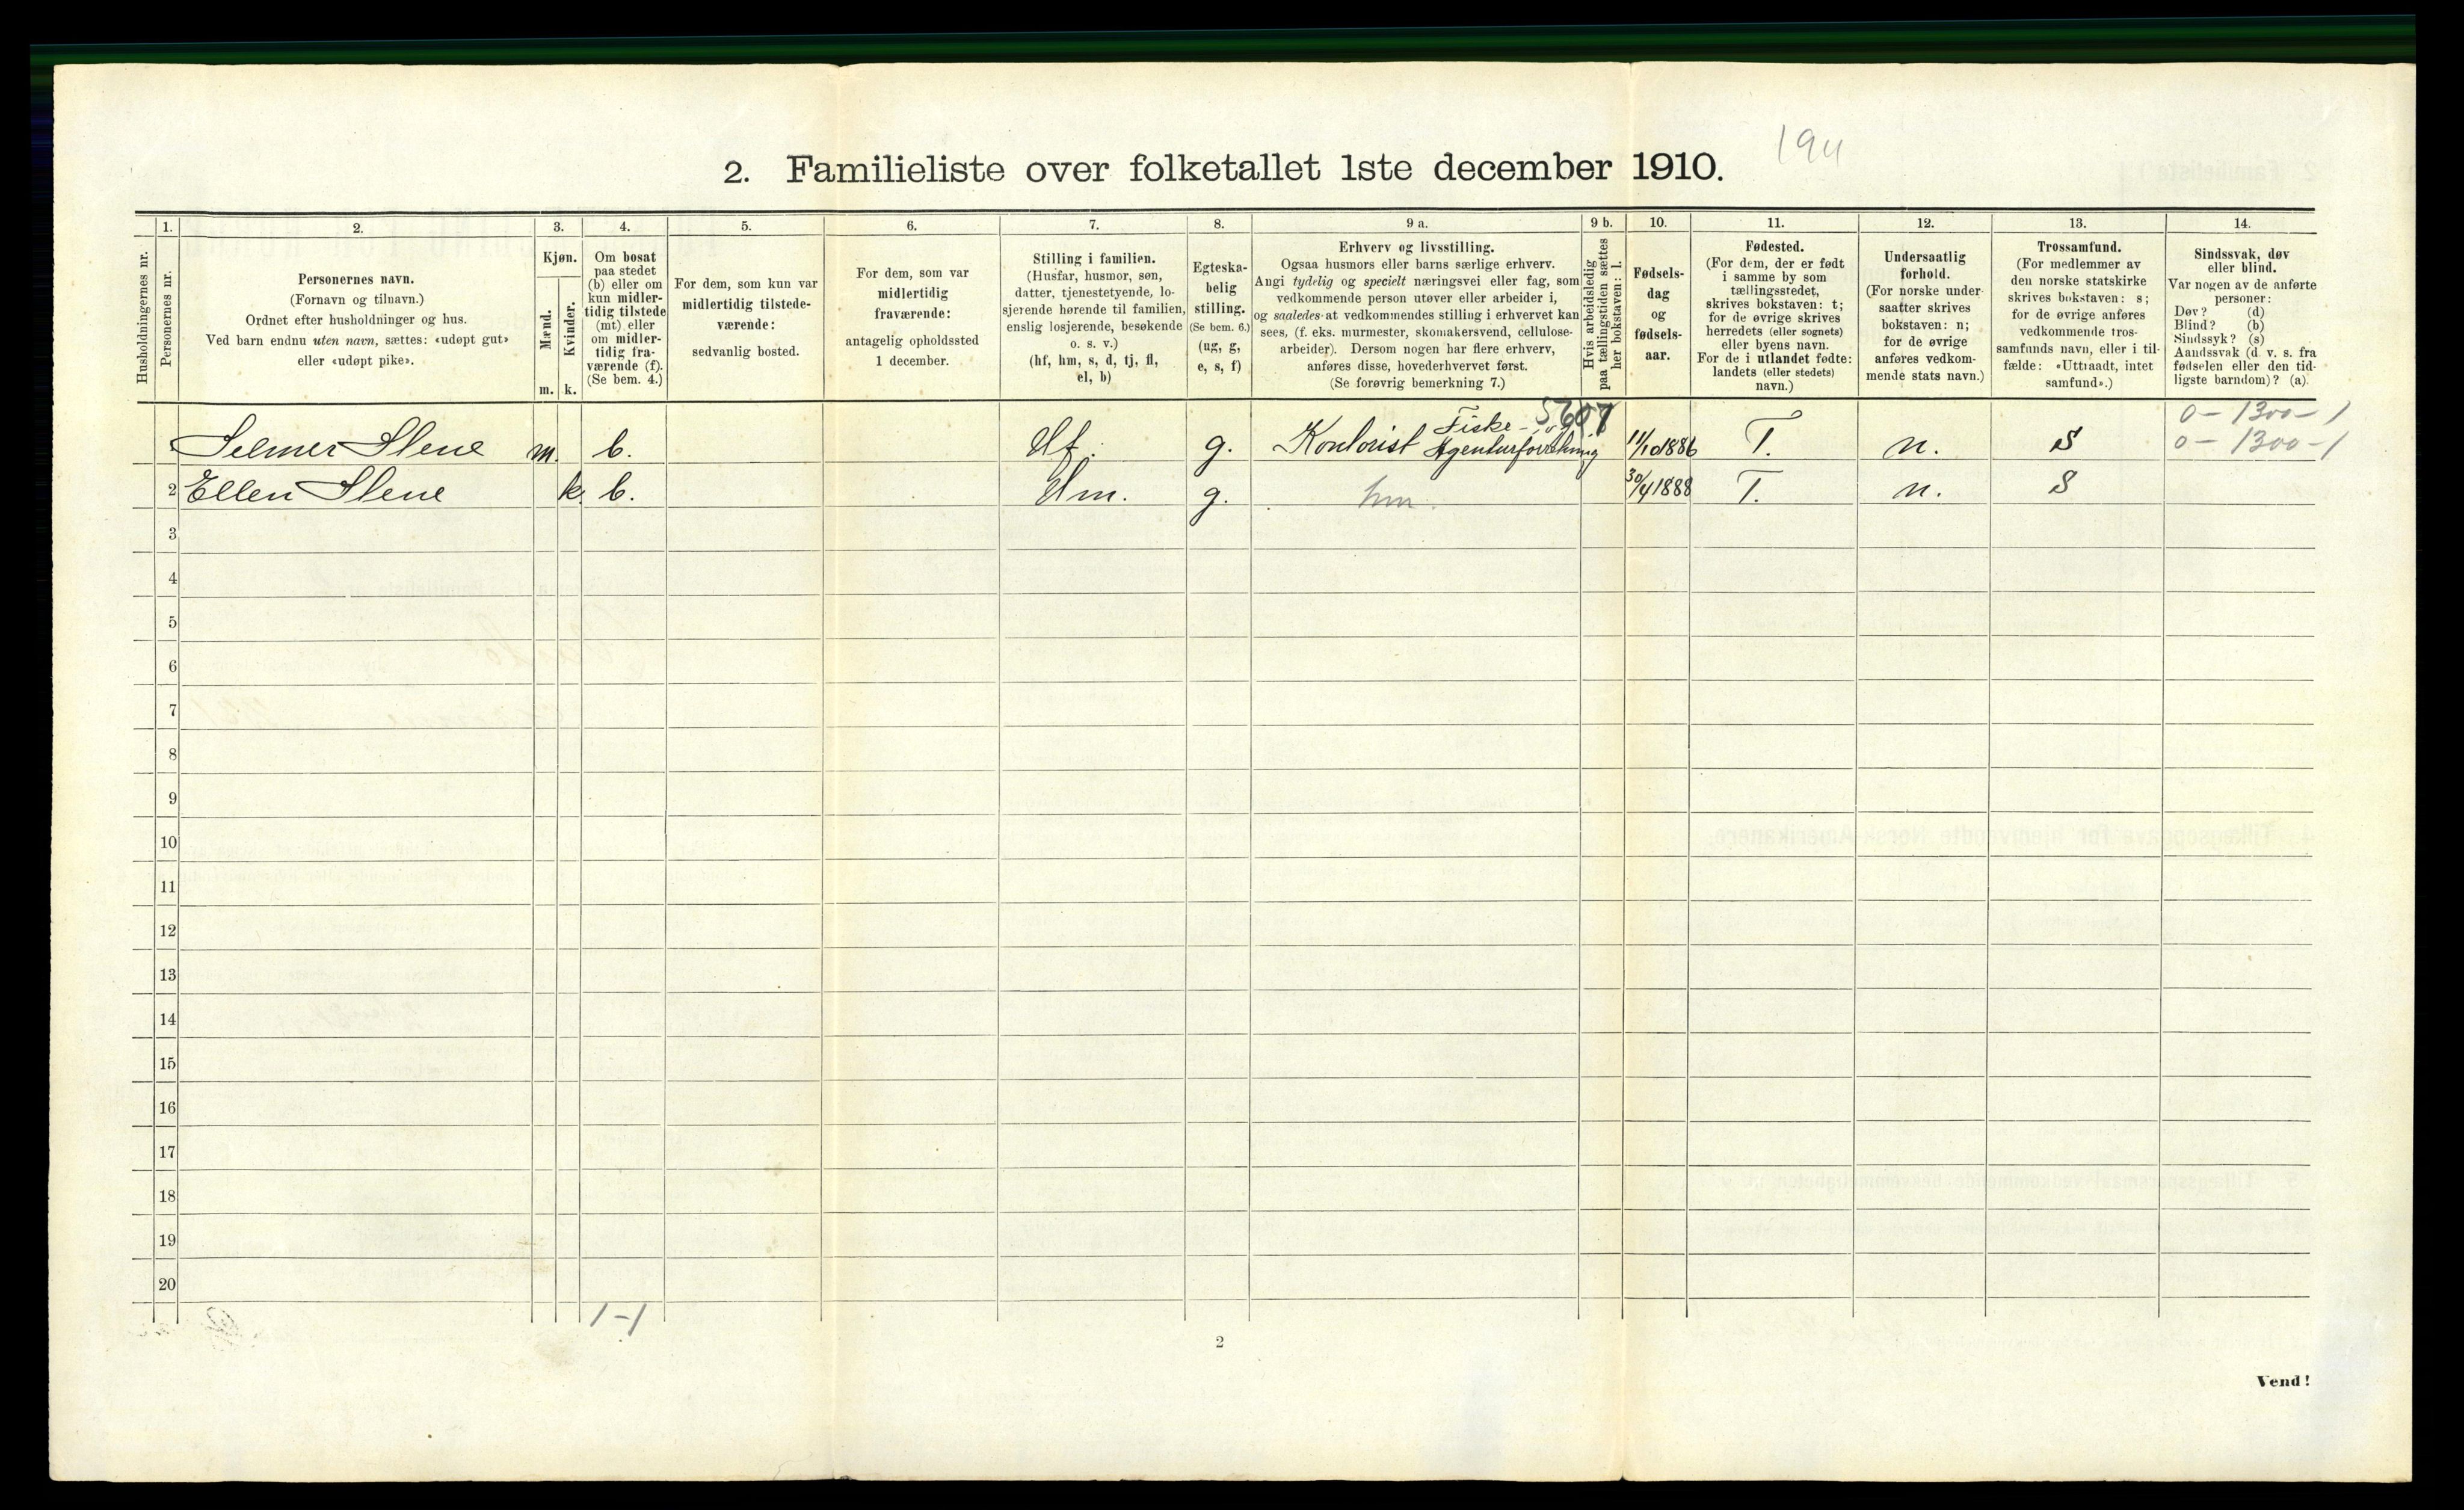 194
2. Familieliste over folketallet 1ste december 1910.
Husholdningernes nr.
1.
Personernes nr.
2.
Personernes navn.
(Fornavn og tilnavn.)
Ordnet efter husholdninger og hus.
Ved barn endnu uten navn, sættes: «udøpt gut»
eller «udøpt pike».
3.
Kjøn.
Mænd.
Kvinder.
m. k.
4.
Om bosat
paa stedet
(b) eller om
kun midler-
tidig tilstede
(mt) eller
om midler-
tidig fra-
værende (f).
(Se bem. 4.)
5.
For dem, som kun var
midlertidig tilstede-
værende:
sedvanlig bosted.
6.
For dem, som var
midlertidig
fraværende:
antagelig opholdssted
1 december.
7.
Stilling i familien.
(Husfar, husmor, søn,
datter, tjenestetyende, lo-
sjerende hørende til familien,
enslig losjerende, besøkende
o. s. v.)
(hf, hm, s, d, tj, fl,
el, b)
8.
Egteska-
belig
stilling.
(Se bem. 6.)
(ug, g,
e, s, f)
9 a.
Erhverv og livsstilling.
Ogsaa husmors eller barns særlige erhverv.
Angi tydelig og specielt næringsvei eller fag, som
vedkommende person utøver eller arbeider i,
og saaledes at vedkommendes stilling i erhvervet kan
sees, (f. eks. murmester, skomakersvend, cellulose-
arbeider). Dersom nogen har flere erhverv,
anføres disse, hovederhvervet først.
(Se forøvrig bemerkning 7.)
9 b.
Hvis arbeidsledig
paa tællingstiden sættes
her bokstaven: l.
10.
Fødsels-
dag
og
fødsels-
aar.
11.
Fødested.
(For dem, der er født
i samme by som
tællingsstedet,
skrives bokstaven: t;
for de øvrige skrives
herredets (eller sognets)
eller byens navn.
For de i utlandet fødte:
landets (eller stedets)
navn.)
12.
Undersaatlig
forhold.
(For norske under-
saatter skrives
bokstaven: n;
for de øvrige
anføres vedkom-
mende stats navn.)
13.
Trossamfund.
(For medlemmer av
den norske statskirke
skrives bokstaven: s;
for de øvrige anføres
vedkommende tros-
samfunds navn, eller i til-
fælde: «Uttraadt, intet
samfund».)
14.
Sindssvak, døv
eller blind.
Var nogen av de anførte
personer:
Døv? (d)
Blind? (b)
Sindssyk? (s)
Aandssvak (d. v. s. fra
fødselen eller den tid-
ligste barndom)? (a).
0 - 1300 - 1
1 Selmer Stene m. b. Hf. g. Kontorist Fiske- Agenturforretning 11/10 1886 T. n. S 0 - 1300 - 1
2 Ellen Stene k. b. Hm. g. hm. 30/4 1888 T. n. S
3
4
5
6
7
8
9
10
11
12
13
14
15
16
17
18
19
20
1 - 1
2
Vend!